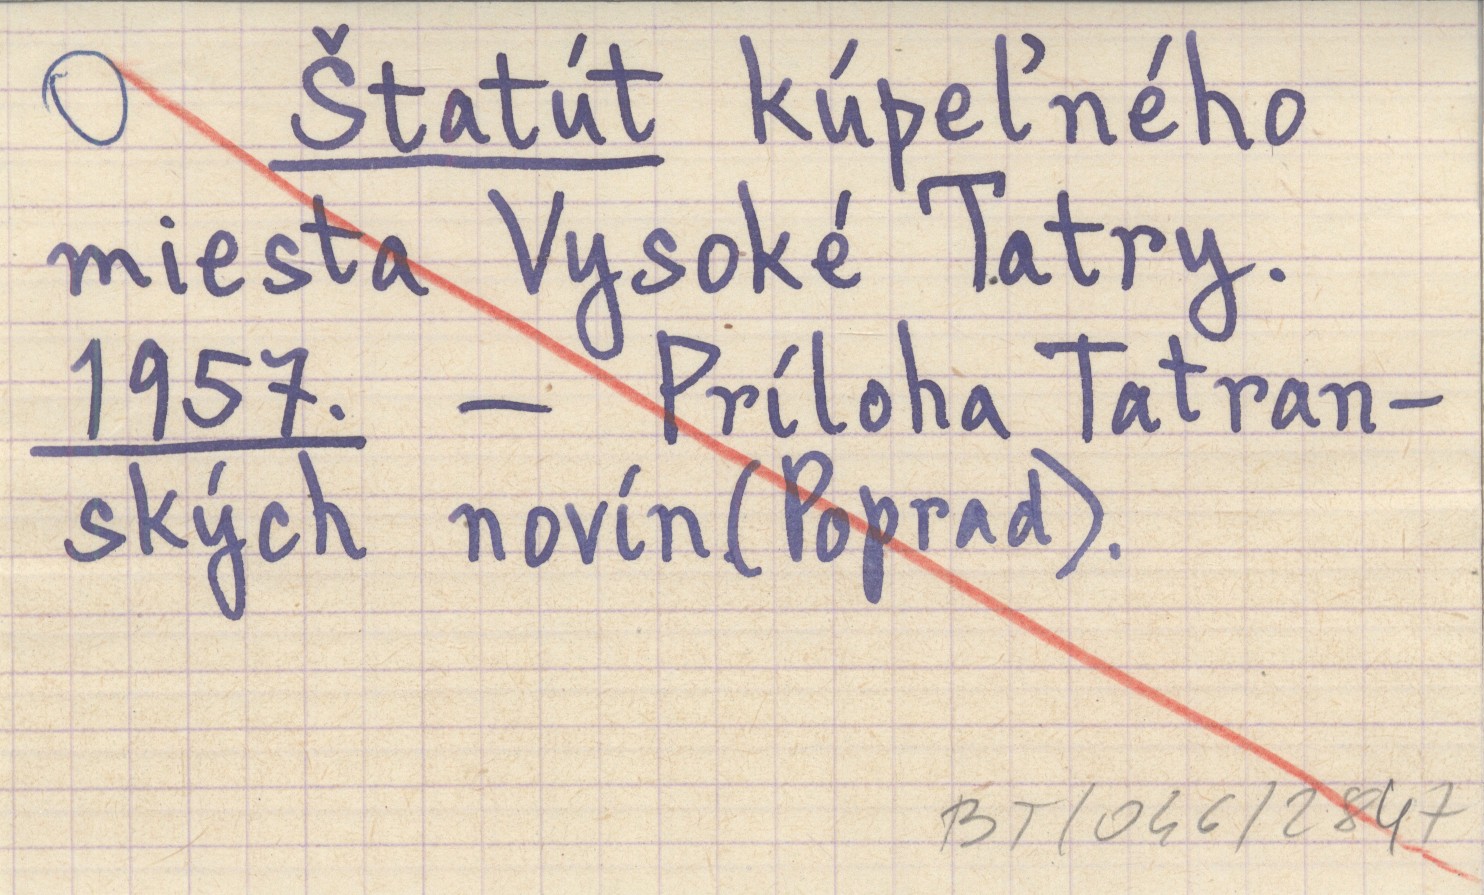 Štatút kúpeľného
miesta Vysoké Tatry.
1957. — Príloha Tatran-
ských novín (Poprad).
BT/046/2847